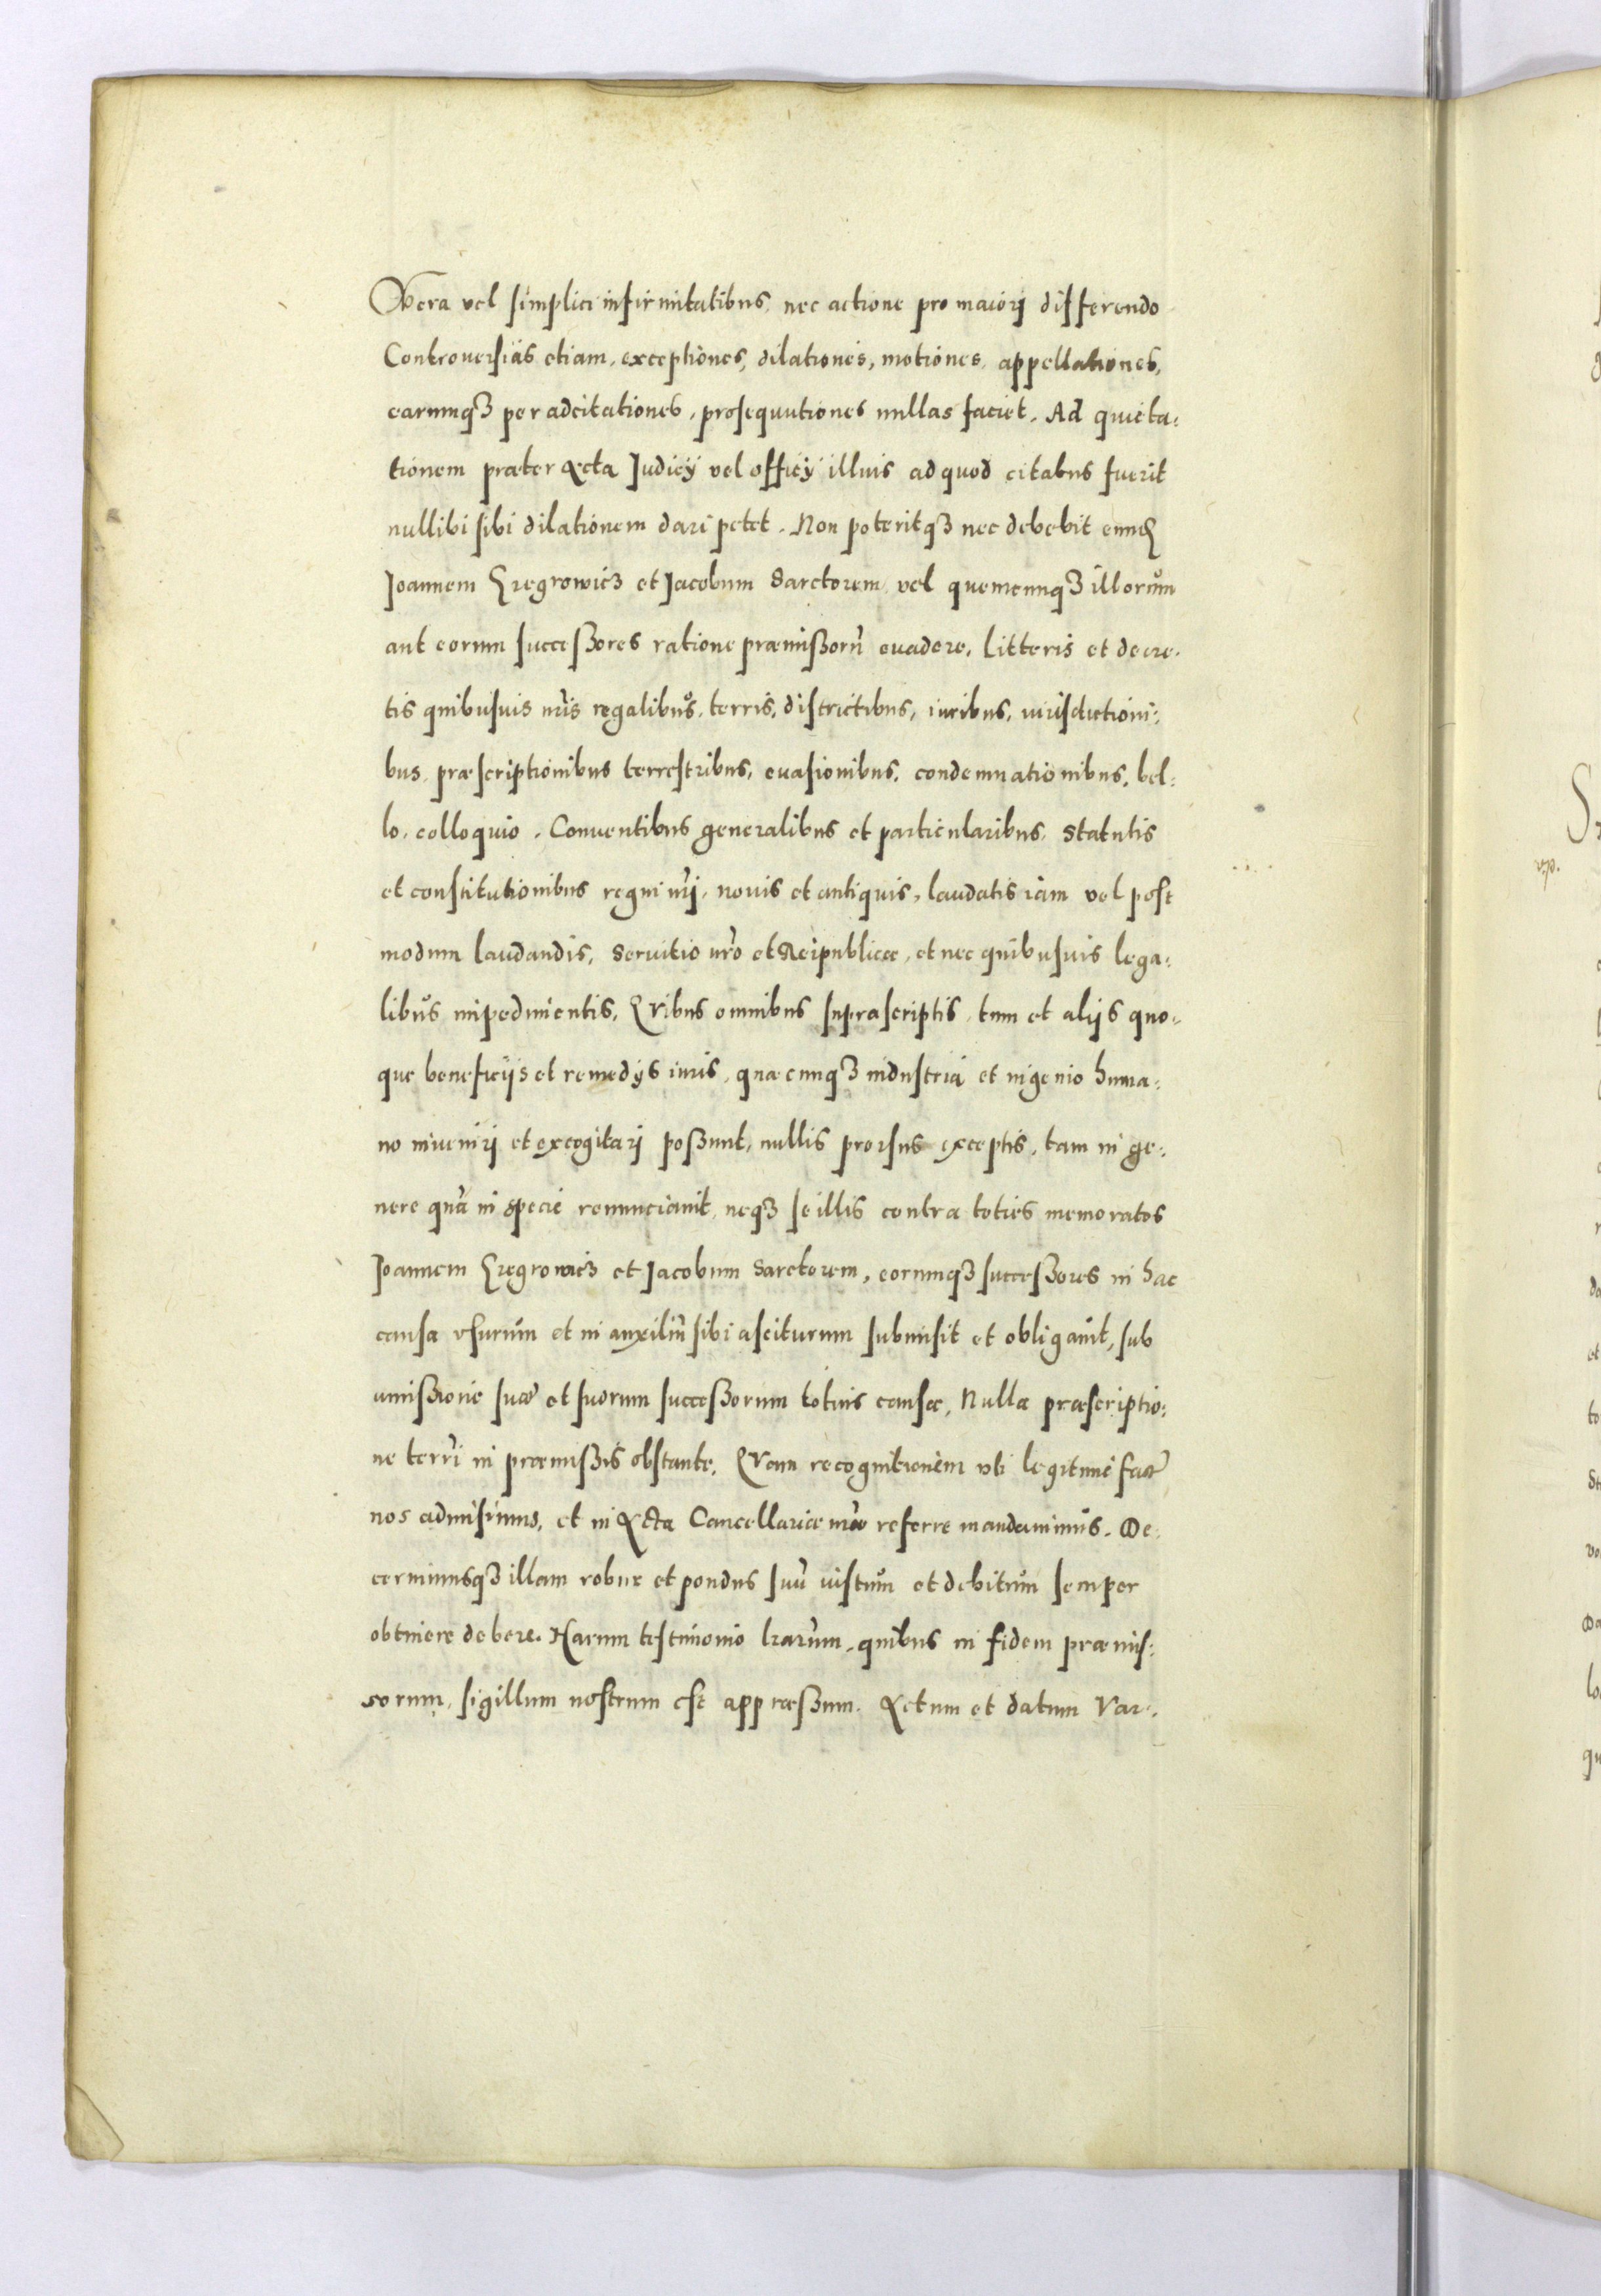 Vera vel simplici infirmitatibus, nec actione pro maiorj differendo
Controuersias etiam, exceptiones, dilationes, motiones, appellationes,
earumq3 per adcitationes, prosequutiones nullas faciet. Ad quieta-
tionem præter Acta Judicÿ vel officÿ illius ad quod citatus fuerit
nullibi sibi dilationem dari petet. Non poteritq3 nec debebit eund
Joannem Gregrowicz et Jacobum Sarctorem, vel quemcunq3 illorum
aut eorum successores ratione præmissorū euadere, litteris et decre-
tis quibusuis nr̄is regalibus, terris, districtibus, iuribus, iurisdictioni-
bus, præscriptionibus terrestribus, euasionibus, condemnationibus, bel-
lo, colloquio, Conuentibus generalibus et particularibus, statutis
et constitutionibus regni nr̄j, nouis et antiquis, laudatis iam vel post
modum laudandis, Seruitio nr̄o et Reipublicæ, et nec quibusuis lega-
libus impedimentis, Quibus omnibus suprascriptis, tum et alijs quo-
que beneficijs et remedÿs iuris, quæcunq3 industria et ingenio huma-
no inuenirj et excogitarj possunt, nullis prorsus exceptis, tam in ge-
nere quā in specie renunciauit, neq3 se illis contra toties memoratos
Joannem Gregrowicz et Jacobum Sarctorem, eorumq3 successores in hac
causa vsurum et in auxiliū sibi asciturum submisit et obligauit, sub
amissione suæ et suorum successorum totius causæ, Nulla præscriptio-
ne terrī in præmissis obstante, Quam recognitionem vti legitime factā
nos admisimus, et in Acta Cancellariæ nr̄æ referre mandauimus. De-
cernimusq3 illam robur et pondus suū iustum et debitum semper
obtinere debere. Harum testimonio lrarum, quibus in fidem præmis-
sorum, sigillum nostrum est appræssum. Actum et datum Var-